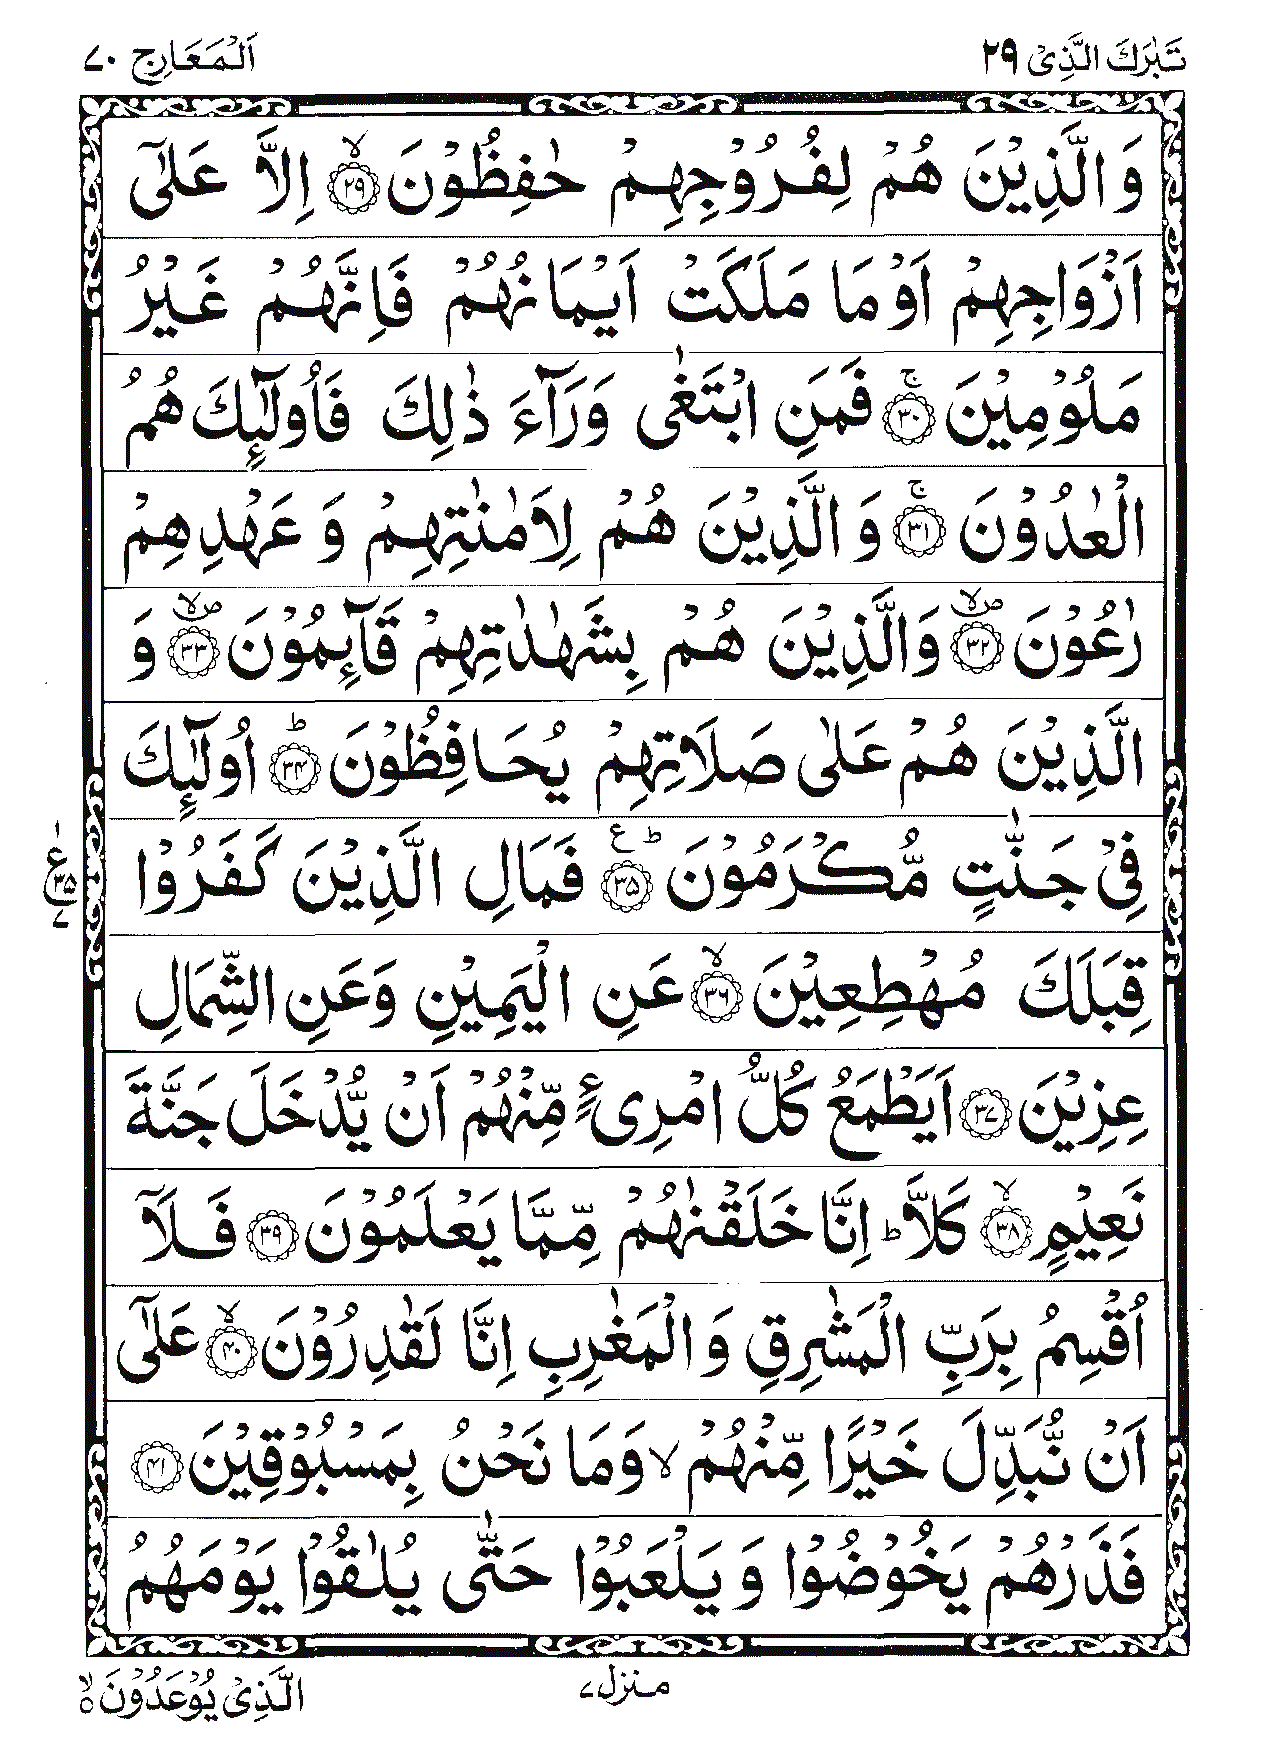 تَبٰرَكَ الَّذِیْ ۲۹
اَلْمَعَارِج ۷۰
وَ الَّذِیْنَ هُمْ لِفُرُوْجِهِمْ حٰفِظُوْنَۙ ۲۹ اِلَّا عَلٰۤی
اَزْوَاجِهِمْ اَوْ مَا مَلَكَتْ اَیْمَانُهُمْ فَاِنَّهُمْ غَیْرُ
مَلُوْمِیْنَۚ ۳۰ فَمَنِ ابْتَغٰی وَرَآءَ ذٰلِكَ فَاُولٰٓىِٕكَ هُمُ
الْعٰدُوْنَۚ ۳۱ وَ الَّذِیْنَ هُمْ لِاَمٰنٰتِهِمْ وَ عَهْدِهِمْ
رٰعُوْنَ ۪ۙ ۳۲ وَالَّذِیْنَ هُمْ بِشَهٰدٰتِهِمْ قَآىِٕمُوْنَ ۪ۙ ۳۳ وَ
الَّذِیْنَ هُمْ عَلٰی صَلَاتِهِمْ یُحَافِظُوْنَؕ ۳۴ اُولٰٓىِٕكَ
فِیْ جَنّٰتٍ مُّكْرَمُوْنَؕ ع ۳۵ فَمَالِ الَّذِیْنَ كَفَرُوْا
۱
ع ۳۵
۷
قِبَلَكَ مُهْطِعِیْنَۙ ۳۶ عَنِ الْیَمِیْنِ وَعَنِ الشِّمَالِ
عِزِیْنَ ۳۷ اَیَطْمَعُ كُلُّ امْرِئٍ مِّنْهُمْ اَنْ یُّدْخَلَ جَنَّةَ
نَعِیْمٍۙ ۳۸ كَلَّاؕ اِنَّا خَلَقْنٰهُمْ مِّمَّا یَعْلَمُوْنَ ۳۹ فَلَاۤ
اُقْسِمُ بِرَبِّ الْمَشٰرِقِ وَ الْمَغٰرِبِ اِنَّا لَقٰدِرُوْنَۙ ۴۰ عَلٰۤی
اَنْ نُّبَدِّلَ خَیْرًا مِّنْهُمْۙ وَمَا نَحْنُ بِمَسْبُوْقِیْنَ ۴۱
فَذَرْهُمْ یَخُوْضُوْا وَ یَلْعَبُوْا حَتّٰی یُلٰقُوْا یَوْمَهُمُ
منزل ۷
الَّذِیْ یُوْعَدُوْنَ ۙ۵